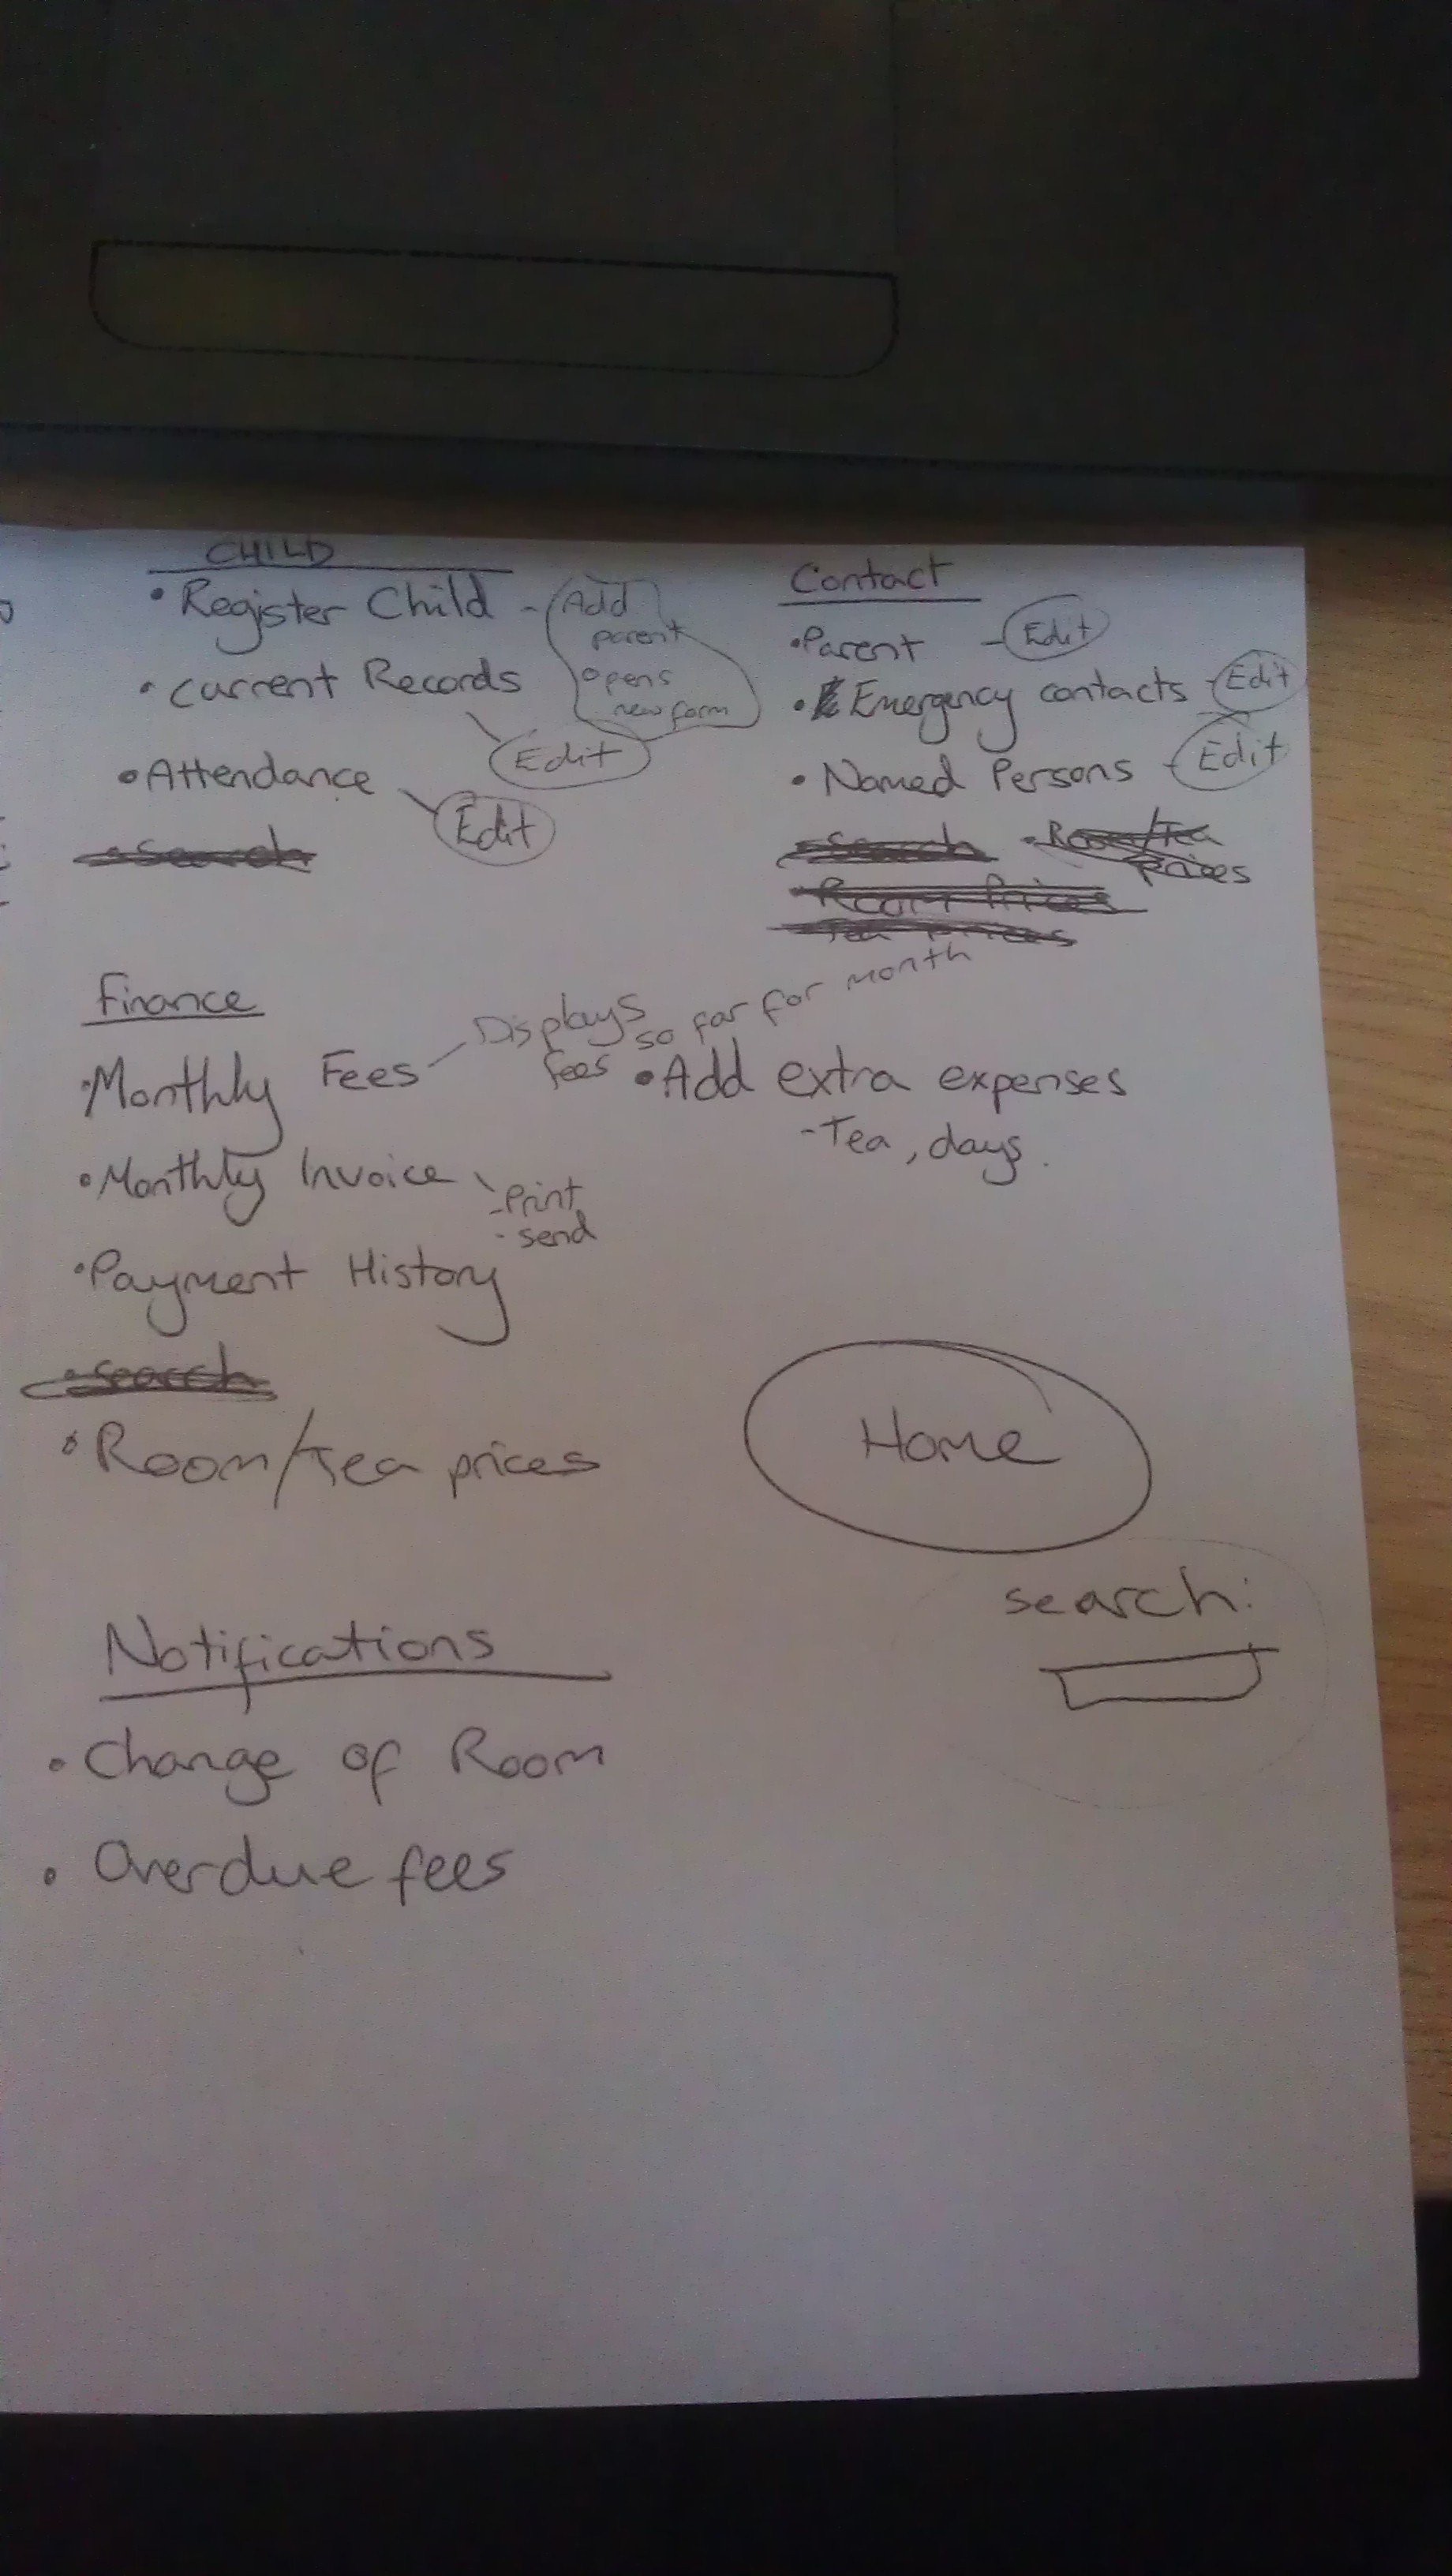 CHILD
• Register Child - Add
parent
opens
new form
• Current Records
Edit
• Attendance
Edit
• Search
Contact
• Parent - Edit
• Emergency contacts - Edit
• Named Persons - Edit
• Search
• Room/Tea
Prices
Room Prices
Tea Prices
Finance
• Monthly Fees - Displays
fees so far for month
• Add extra expenses
- Tea, days.
• Monthly Invoice
- Print
- send
• Payment History
• Search
• Room/Tea prices
Home
search:
Notifications
• Change of Room
• Overdue fees